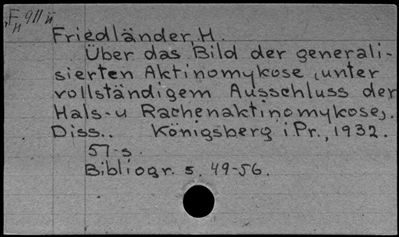 F 911 ü
H
Friedländer, H.
Über das Bild der generali-
sierten Aktinomykose (unter
vollständigem Ausschluss der
Hals- u Rachenaktinomykose).
Diss.. Königsberg i Pr., 1932.
57 s.
Bibliogr. s. 49-56.